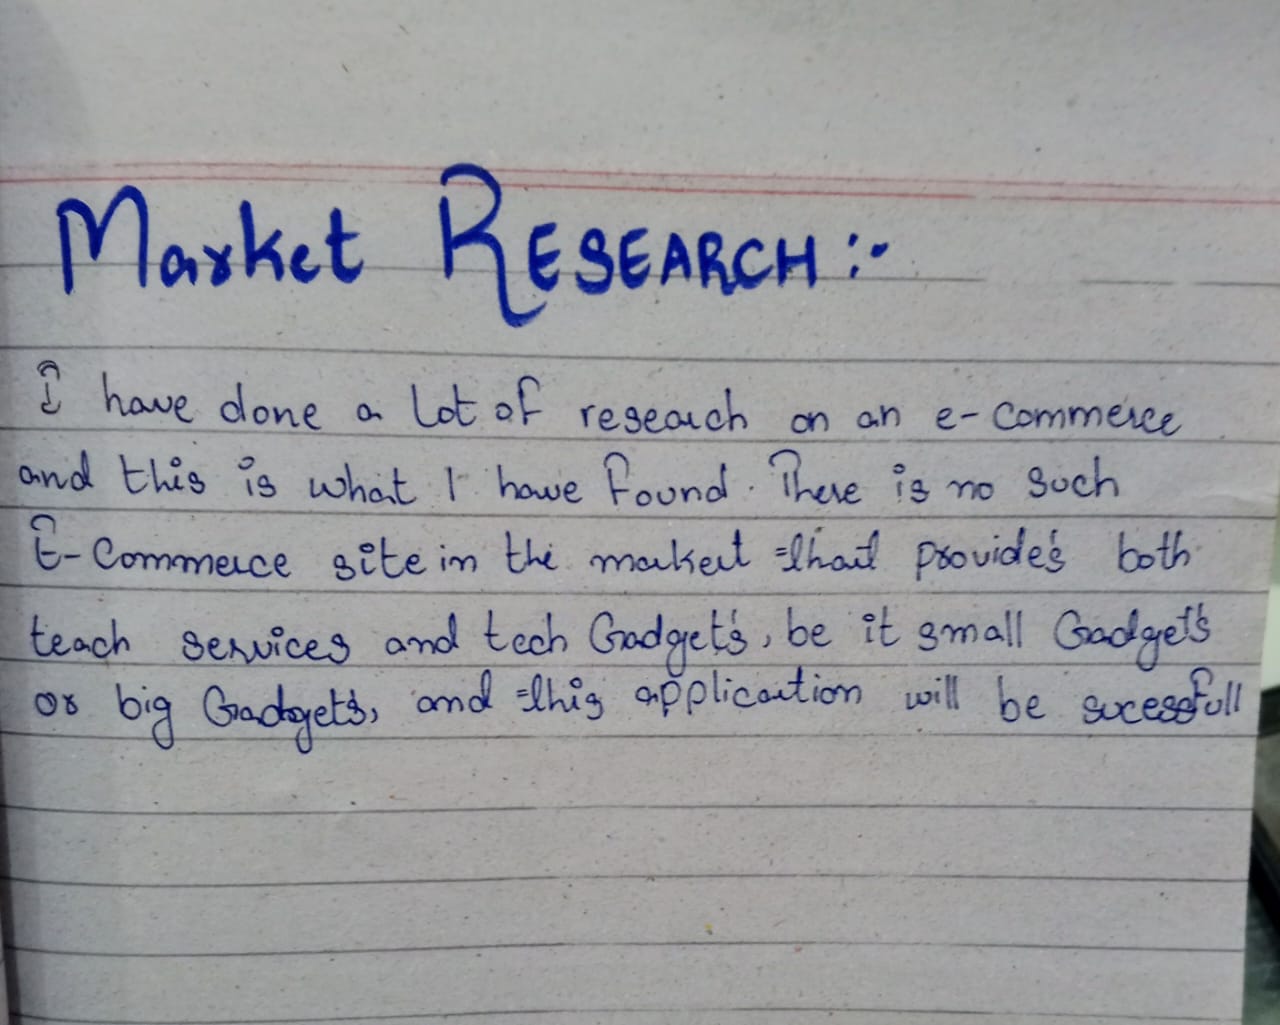 Market RESEARCH :-
I have done a lot of research on an e-commerce
and this is what I have found. There is no such
E-Commerce site in the market that provide's both
teach services and tech Gadget's, be it small Gadget's
or big Gadget's, and this application will be sucessfull